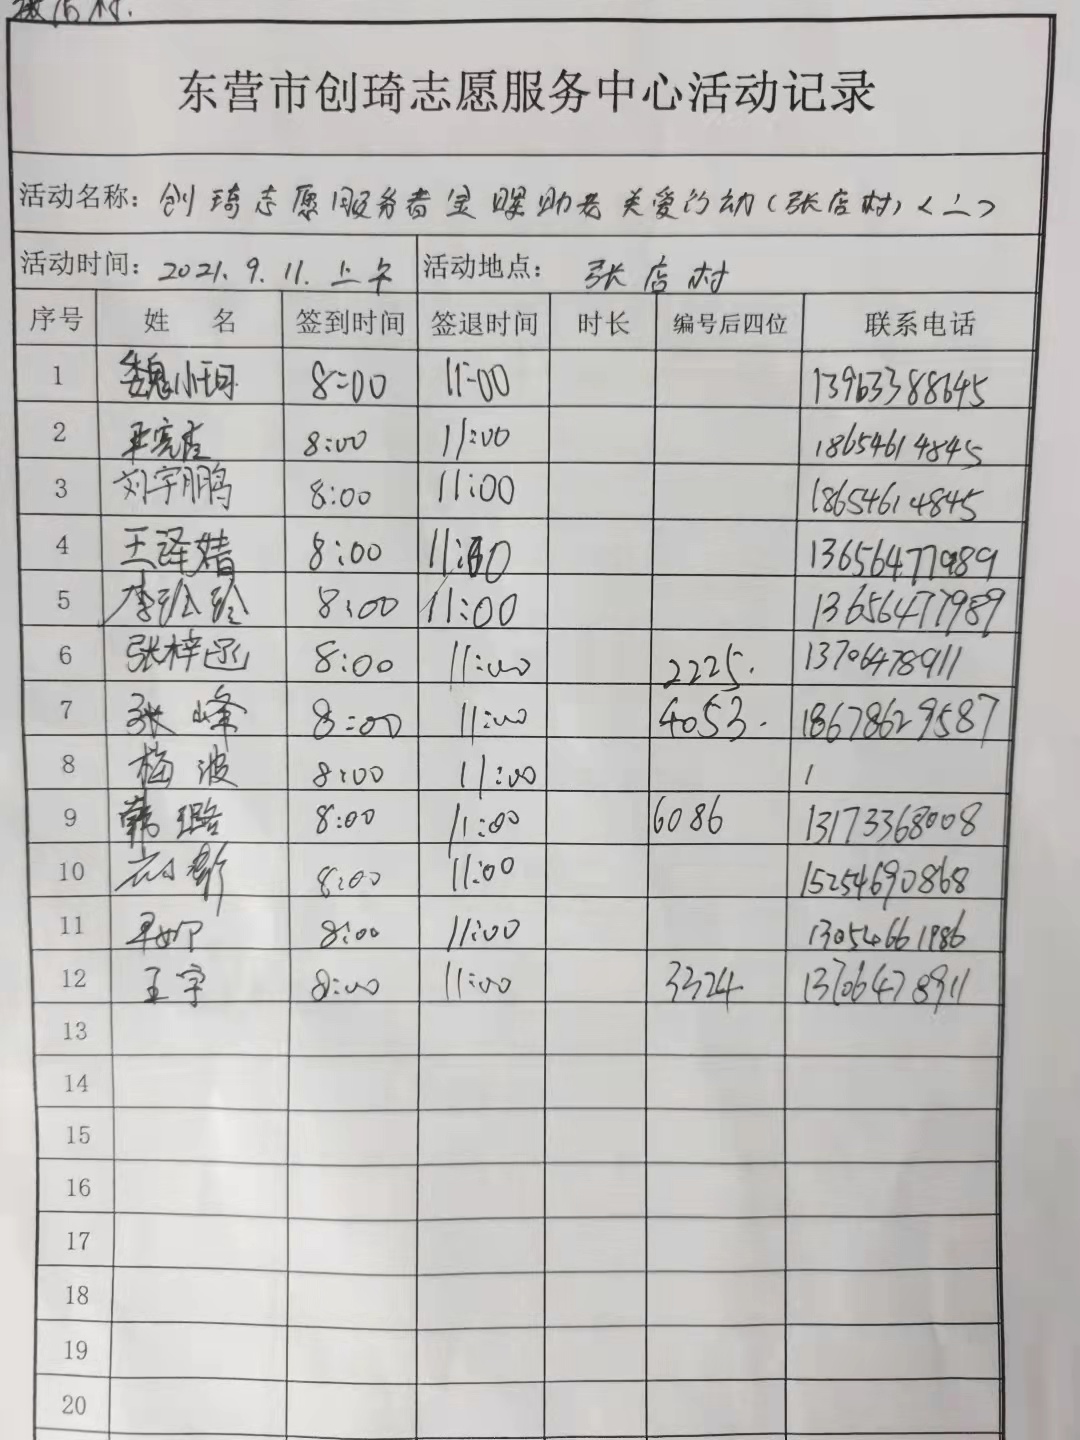 张店村.
东营市创琦志愿服务中心活动记录
活动名称: 创琦志愿服务者 助老关爱行动(张店村)<二>
活动时间: 2021.9.11.上午 活动地点: 张店村
序号 姓 名 签到时间 签退时间 时长 编号后四位 联系电话
1 魏小珂 8:00 11:00 13963388645
2 8:00 11:00 18654614845
3 刘宇鹏 8:00 11:00 18654614845
4 王泽婧 8:00 11:00 13656477989
5 李 玲 8:00 11:00 13656477989
6 张梓函 8:00 11:00 2225. 13706478911
7 张峰 8:00 11:00 4053. 18678629587
8 梅波 8:00 11:00 1
9 韩璐 8:00 11:00 6086 13173368008
10 8:00 11:00 15254690868
11 8:00 11:00 13054661986
12 王宇 8:00 11:00 3324 13706478911
13
14
15
16
17
18
19
20